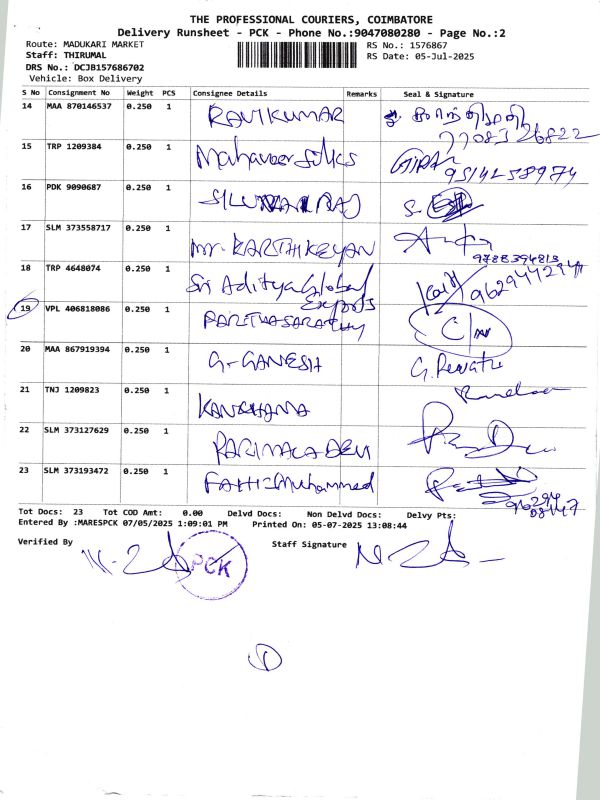 THE PROFESSIONAL COURIERS, COIMBATORE
Delivery Runsheet - PCK - Phone No.:9047080280 - Page No.:2
Route: MADUKARI MARKET RS No.: 1576867
Staff: THIRUMAL RS Date: 05-Jul-2025
DRS No.: DCJB157686702
Vehicle: Box Delivery
S No Consignment No Weight PCS Consignee Details Remarks Seal & Signature
14 MAA 870146537 0.250 1 RAVIKUMAR
77083 26822
15 TRP 1209384 0.250 1 Mahaveer silks
16 PDK 9090687 0.250 1
17 SLM 373558717 0.250 1 Mr. KARTHIKEYAN
9788394813
18 TRP 4648074 0.250 1 Sri Aditya Global
Exports
19 VPL 406818086 0.250 1 PARTHASARATHY
20 MAA 867919394 0.250 1 G-GANESH G. Revathi
21 TNJ 1209823 0.250 1 KANCHANA
22 SLM 373127629 0.250 1 PARIMALA DEVI
23 SLM 373193472 0.250 1 Muhammed
Tot Docs: 23 Tot COD Amt: 0.00 Delvd Docs: Non Delvd Docs: Delvy Pts:
Entered By :MARESPCK 07/05/2025 1:09:01 PM Printed On: 05-07-2025 13:08:44
Verified By Staff Signature
PCK
1